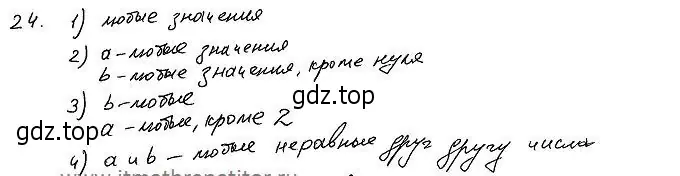 24. 1) любые значения
2) a – любые значения
b – любые значения, кроме нуля
3) b – любые
gdz.top
gdz.top
a – любые, кроме 2
4) a и b – любые неравные друг другу числа